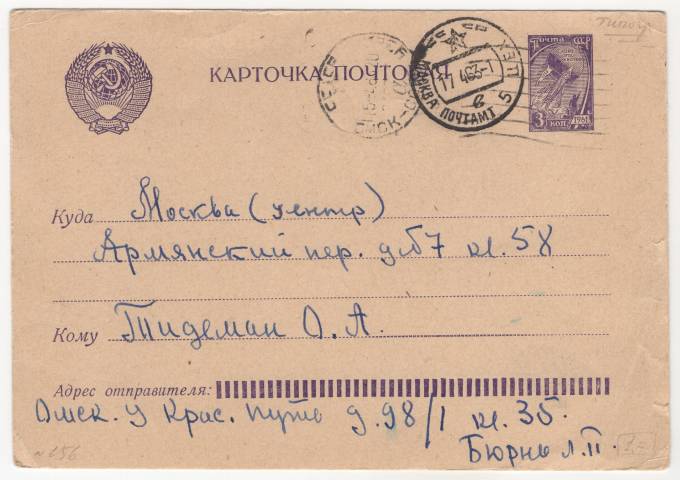 типогр
Почта СССР
КАРТОЧКА ПОЧТОВАЯ
СССР
ОМСК
СССР
17 4 63-1
МОСКВА ПОЧТАМТ 5
3 КОП. 1961
Куда Москва (центр)
Армянский пер. кв. 58
Кому Тидеман О. А.
Адрес отправителя:
Омск. у Крас. Путь д. 98/1 кв. 35.
Бюрнь Л.П.
№ 156